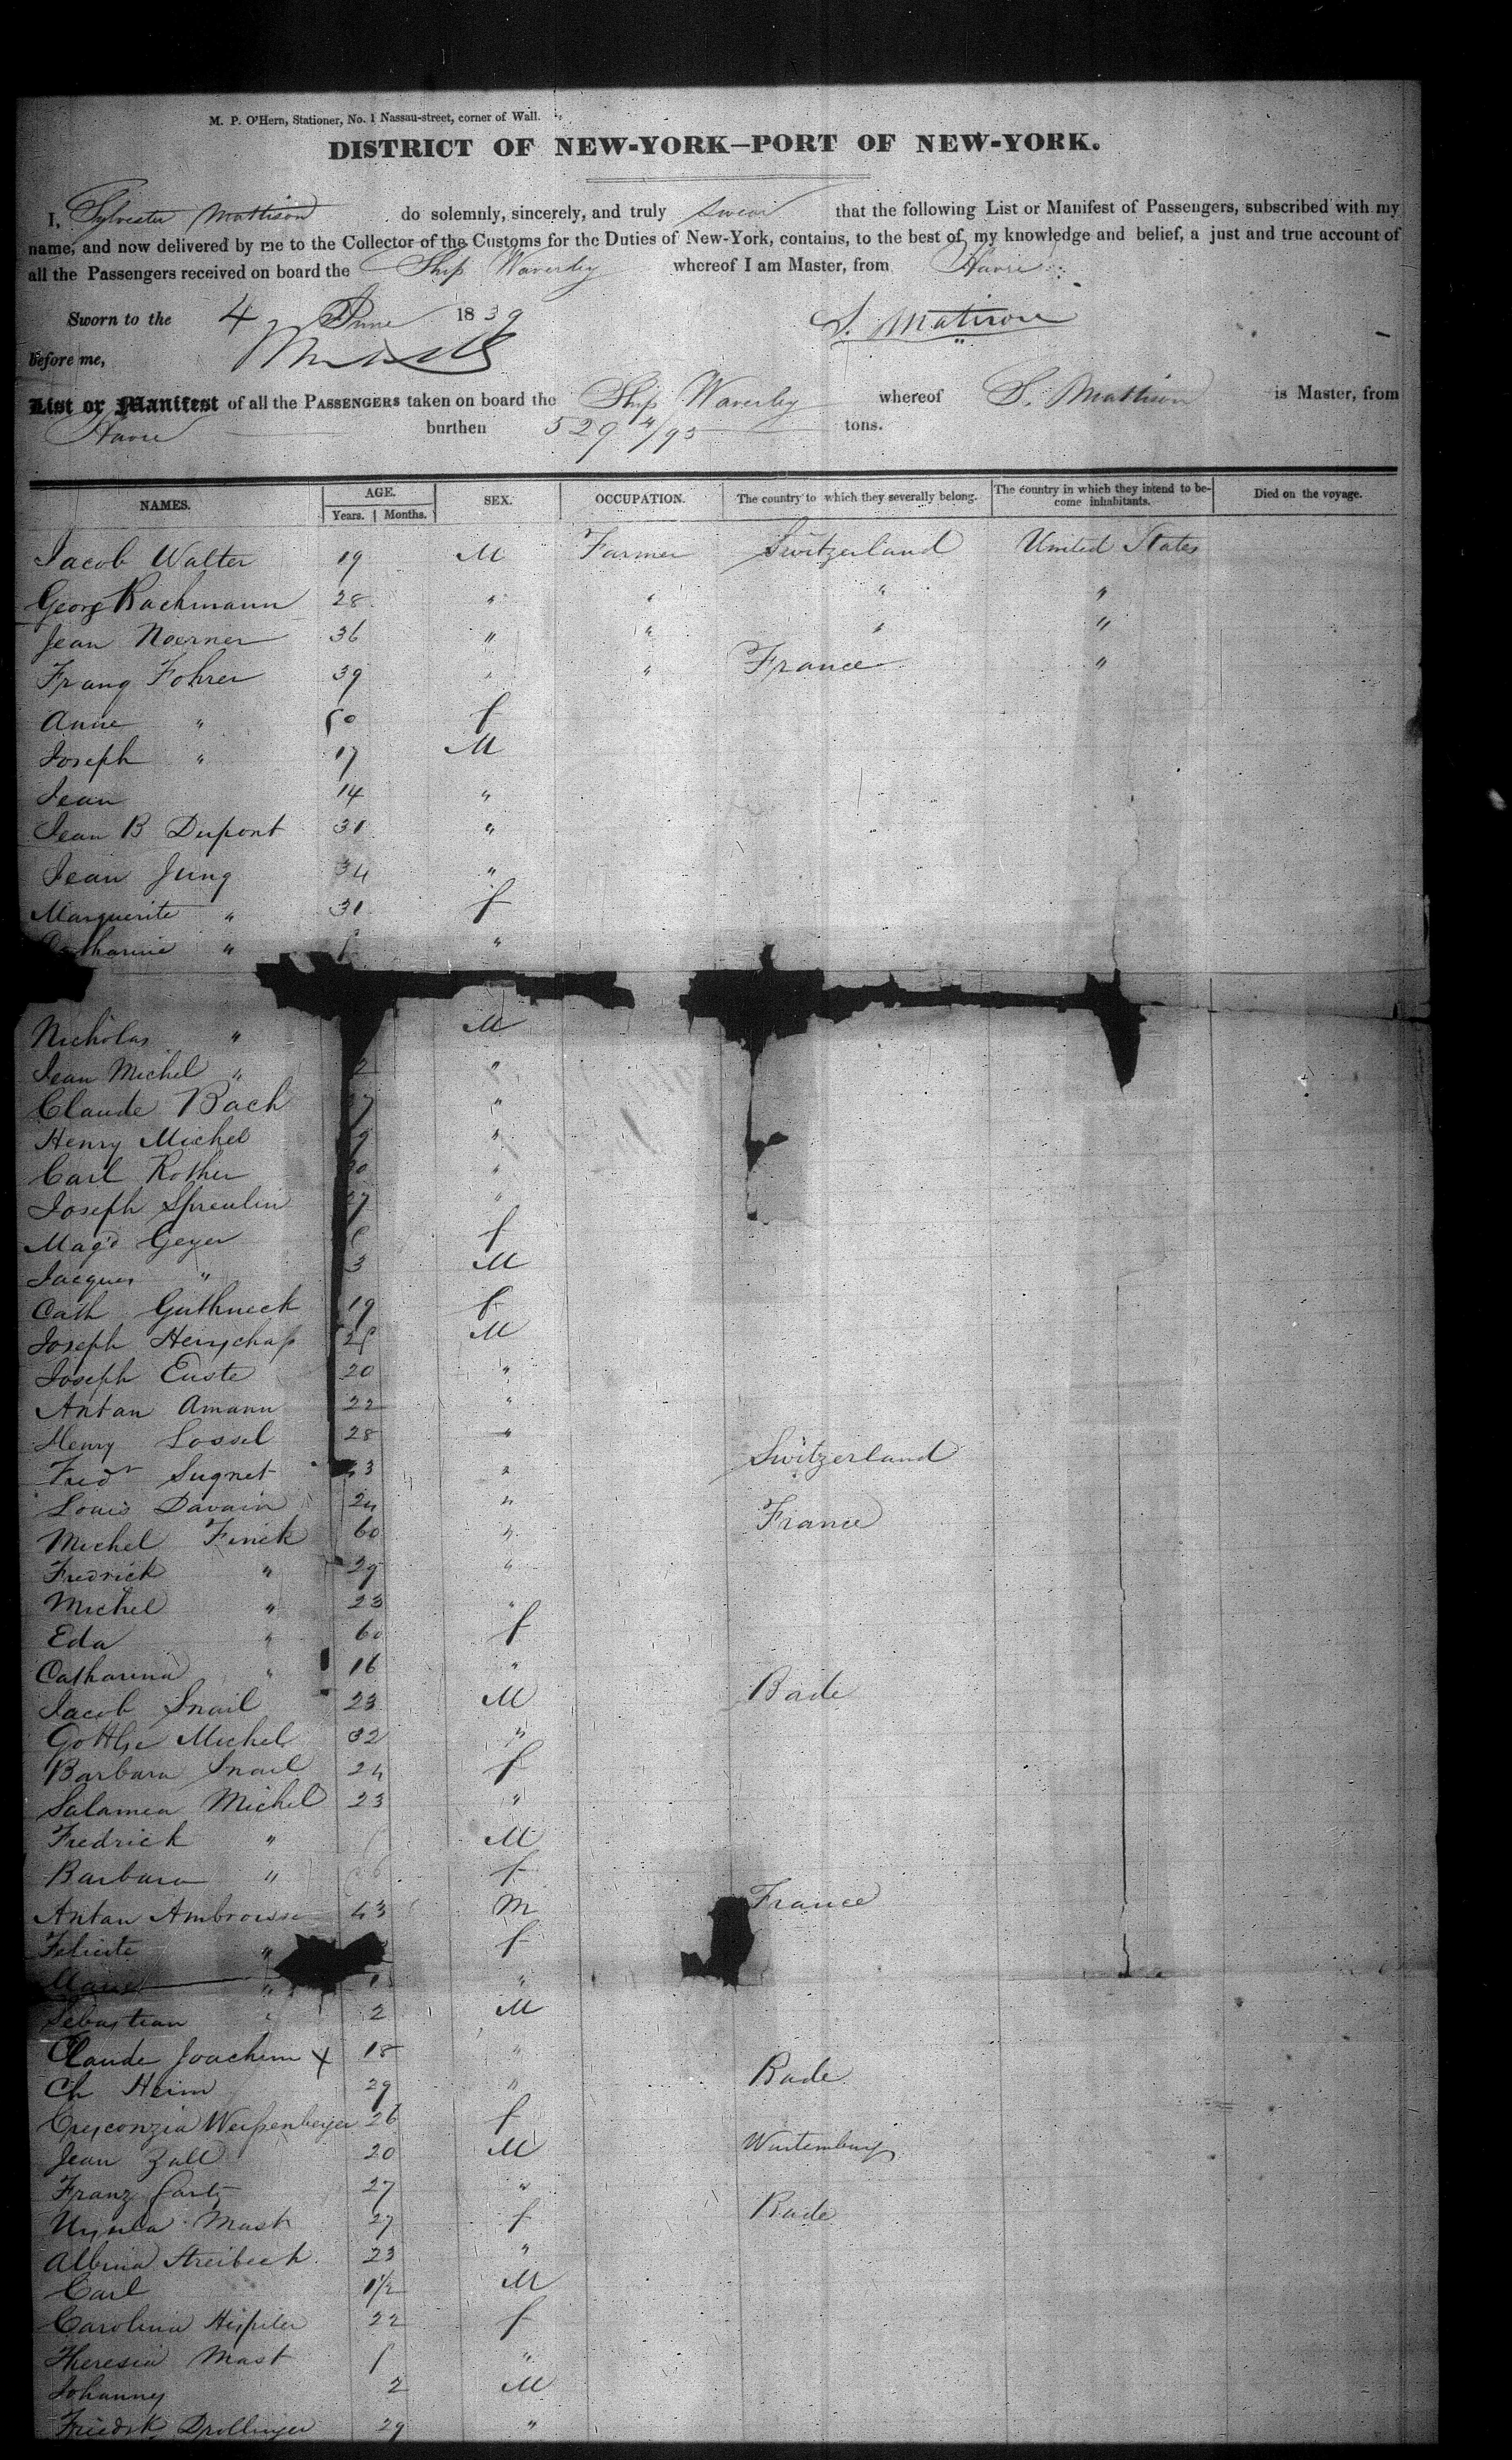 M. P. O'Hern, Stationer, No. 1 Nassau-street, corner of Wall.
DISTRICT OF NEW-YORK—PORT OF NEW-YORK.
I, Sylvester Mattison do solemnly, sincerely, and truly swear that the following List or Manifest of Passengers, subscribed with my
name, and now delivered by me to the Collector of the Customs for the Duties of New-York, contains, to the best of my knowledge and belief, a just and true account of
all the Passengers received on board the Ship Waverley whereof I am Master, from Havre
Sworn to the 4 June 1839 S. Mattison
before me,
List or Manifest of all the PASSENGERS taken on board the Ship Waverley whereof S. Mattison is Master, from
Havre burthen 529 4/95 tons.
NAMES. AGE. SEX. OCCUPATION. The country to which they severally belong. The country in which they intend to be- Died on the voyage.
Years. Months. come inhabitants.
Jacob Walter 19 M Farmer Switzerland United States
Georg Bachmann 28 " " " "
Jean Noerner 36 " " " "
Franz Fohrer 39 " " France "
Anne " 50 f
Joseph " 17 M
Jean 14 "
Jean B Dupont 31 "
Jean Jung 34 "
Marguerite " 31 f
Catharine " "
Nicholas " M
Jean Michel " 2 "
Claude Bach "
Henry Michel "
Carl Rother "
Joseph Spreulin 27 "
Magd Geyer f
Jacques " 3 M
Cath Guthneck 19 f
Joseph 25 M
Joseph Euste 20 "
Antan Amann 22 "
Henry Lossel 28 "
Fredr Sugnet "  Switzerland
Louis Davain 24 "
Michel Finck 60 " France
Fredrick " 29 "
Michel " 23 "
Eda " 60 f
Catharina " 16 "
Jacob Snail 23 M Bade
Michel 32 "
Barbara Snail 24 f
Salamea Michel 23 "
Fredrick " M
Barbara " f
Antan Ambroisse 43 M France
Felicite " f
Marie " "
Sebastian " 2 M
Claude Joachim x 18 "
Ch Heim 29 " Bade
Cresconzia Weissenberger 26 f
Jean Zall 20 M Wurtemburg
Franz 27 "
Ursula Mast 27 f Bade
Albina Streibeck 23 "
Carl 1½ M
Carolina Hispiler 22 f
Theresia Mast "
Johanny 2 M
Friedrk Drollinger 29 "